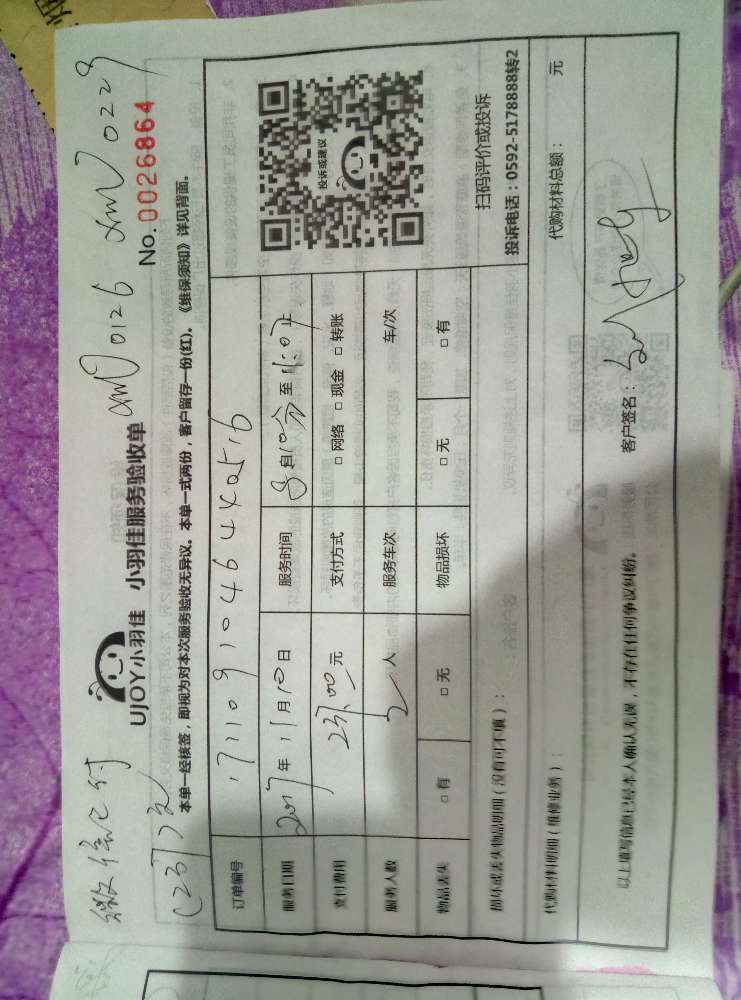 微信已付
(237元)
xmJ 0126 xmJ 0229
UJOY小羽佳 小羽佳服务验收单
No.0026864
本单一经核签，即视为对本次服务验收无异议。本单一式两份，客户留存一份(红)。《维保须知》详见背面。
订单编号
服务日期 2017年11月10日 服务时间 自 至 止
支付费用 237.00元 支付方式 □网络 □现金 □转账
服务人数 2人 服务车次 车/次
物品丢失 □有 □无 物品损坏 □无 □有
投诉或建议
扫码评价或投诉
投诉电话：0592-5178888转2
损坏或丢失物品明细（没有可不填）：
代购材料明细（维修业务）： 代购材料总额： 元
以上填写信息已经本人确认无误，不存在任何争议纠纷。 客户签名：